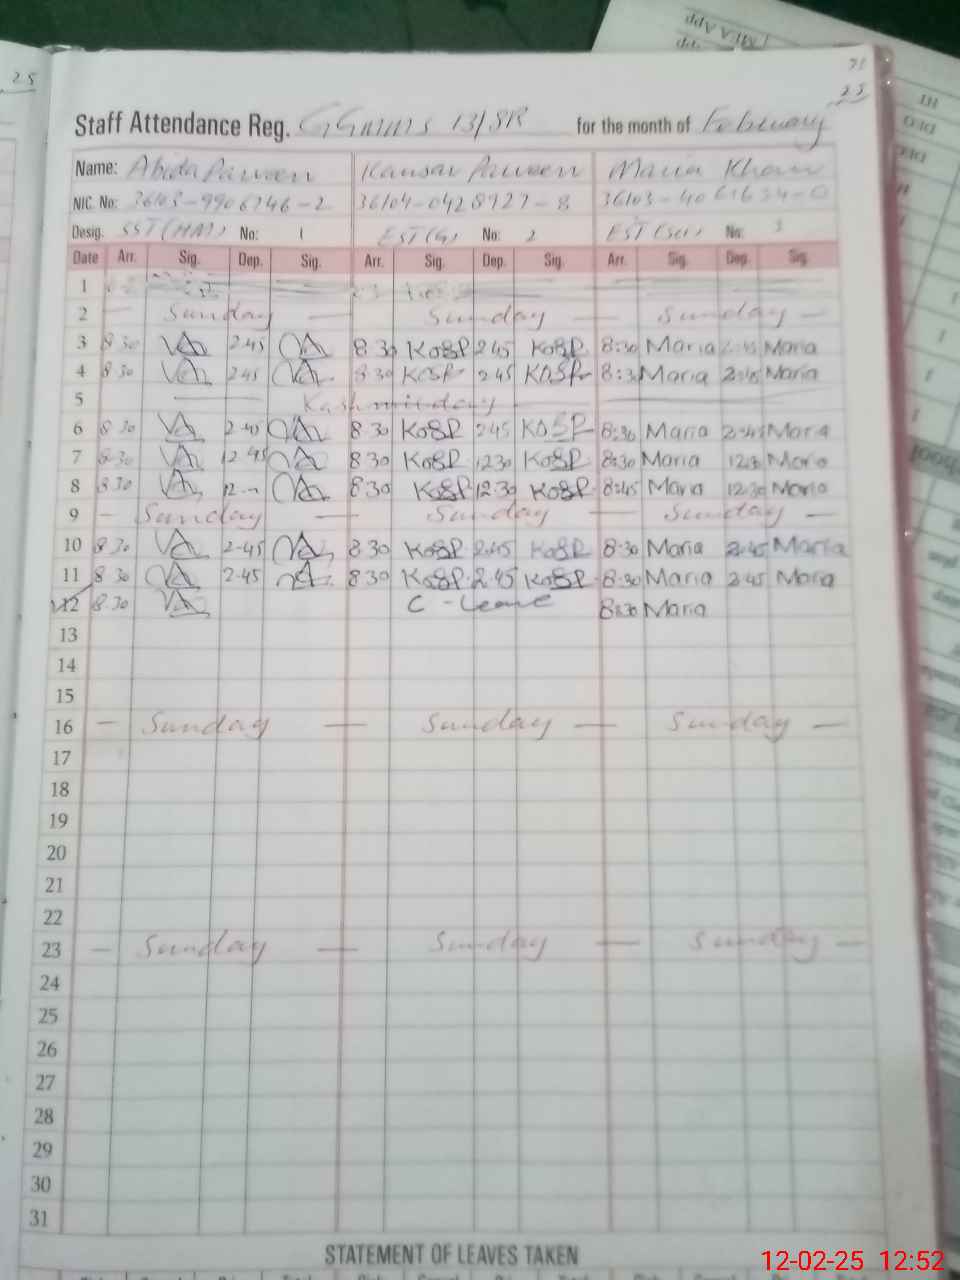 25
23
Staff Attendance Reg. GGMMS 13/SR for the month of February
Name: Abida Parveen Kausar Parveen Maria Khan
NIC. No: 36104-0428927-8
Desig. SST (HM) No: 1 EST (G) No: 2 EST (Sci) No: 3
Date Arr. Sig. Dep. Sig. Arr. Sig. Dep. Sig. Arr. Sig. Dep. Sig.
1
2 — Sunday — Sunday — Sunday —
3 8.30 2.45 8.30 KOSP 2.45 KOSP 8:30 Maria 2:45 Maria
4 8.30 2.45 8.30 KOSP 2.45 KOSP 8:3 Maria 2:45 Maria
5 — Kashmir day —
6 8.30 2.40 8.30 KOSP 2.45 KOSP 8:30 Maria 2:45 Maria
7 8.30 12.45 8.30 KOSP 12.30 KOSP 8:30 Maria 12:3 Maria
8 8.30 12. 8.30 KOSP 12.30 KOSP 8:45 Maria 12:30 Maria
9 — Sunday — Sunday — Sunday —
10 8.30 2.45 8.30 KOSP 2.45 KOSP 8:30 Maria 2:45 Maria
11 8.30 2.45 8.30 KOSP 2.45 KOSP 8:30 Maria 2:45 Maria
12 8.30 C - Leave 8:30 Maria
13
14
15
16 — Sunday — Sunday — Sunday —
17
18
19
20
21
22
23 — Sunday — Sunday — Sunday —
24
25
26
27
28
29
30
31
STATEMENT OF LEAVES TAKEN
12-02-25 12:52